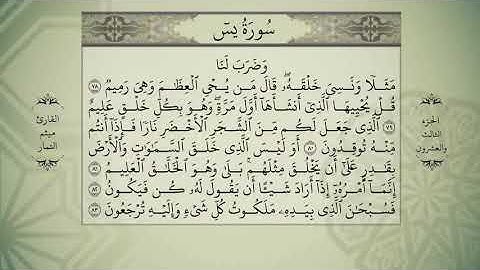 سُورَةُ يسٓ
وَضَرَبَ لَنَا
مَثَلًا وَنَسِىَ خَلْقَهُۥ ۖ قَالَ مَن يُحْىِ ٱلْعِظَٰمَ وَهِىَ رَمِيمٌ ٧٨
قُلْ يُحْيِيهَا ٱلَّذِىٓ أَنشَأَهَآ أَوَّلَ مَرَّةٍ ۖ وَهُوَ بِكُلِّ خَلْقٍ عَلِيمٌ
٧٩ ٱلَّذِى جَعَلَ لَكُم مِّنَ ٱلشَّجَرِ ٱلْأَخْضَرِ نَارًا فَإِذَآ أَنتُم
مِّنْهُ تُوقِدُونَ ٨٠ أَوَلَيْسَ ٱلَّذِى خَلَقَ ٱلسَّمَٰوَٰتِ وَٱلْأَرْضَ
بِقَٰدِرٍ عَلَىٰٓ أَن يَخْلُقَ مِثْلَهُم ۚ بَلَىٰ وَهُوَ ٱلْخَلَّٰقُ ٱلْعَلِيمُ ٨١
إِنَّمَآ أَمْرُهُۥٓ إِذَآ أَرَادَ شَيْـًٔا أَن يَقُولَ لَهُۥ كُن فَيَكُونُ ٨٢
فَسُبْحَٰنَ ٱلَّذِى بِيَدِهِۦ مَلَكُوتُ كُلِّ شَىْءٍ وَإِلَيْهِ تُرْجَعُونَ ٨٣
الجزء
الثالث
والعشرون
القارئ
ميثم
التمار